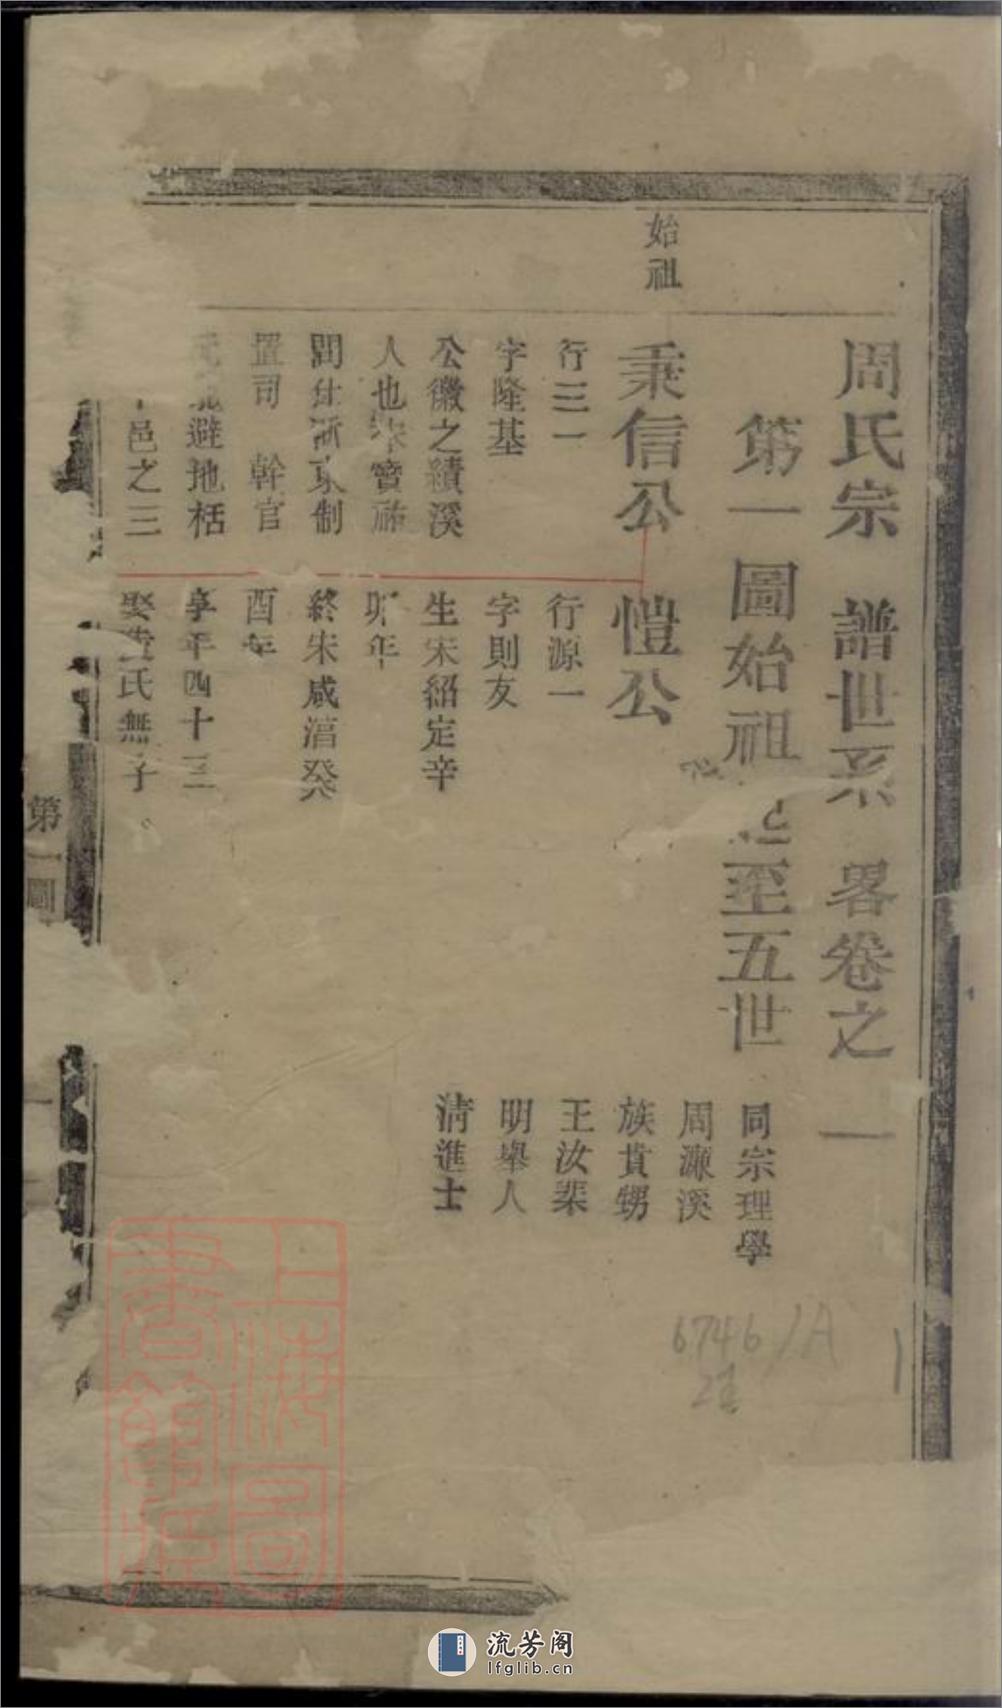 周氏宗譜世系畧卷之一
第一圖始祖起至五世
同宗理學
周濂溪
族貴甥
王汝棐
明舉人
清進士
始祖
秉信公
行三一
字隆基
公徽之績溪
人也宋寶祐
間仕浙東制
置司幹官
避地栝
邑之三
愷公
行源一
字則友
生宋紹定辛
卯年
終宋咸淳癸
酉年
享年四十三
娶 氏無子
第一圖
一
6746/A
上海圖書館藏
流芳阁
lfglib.cn